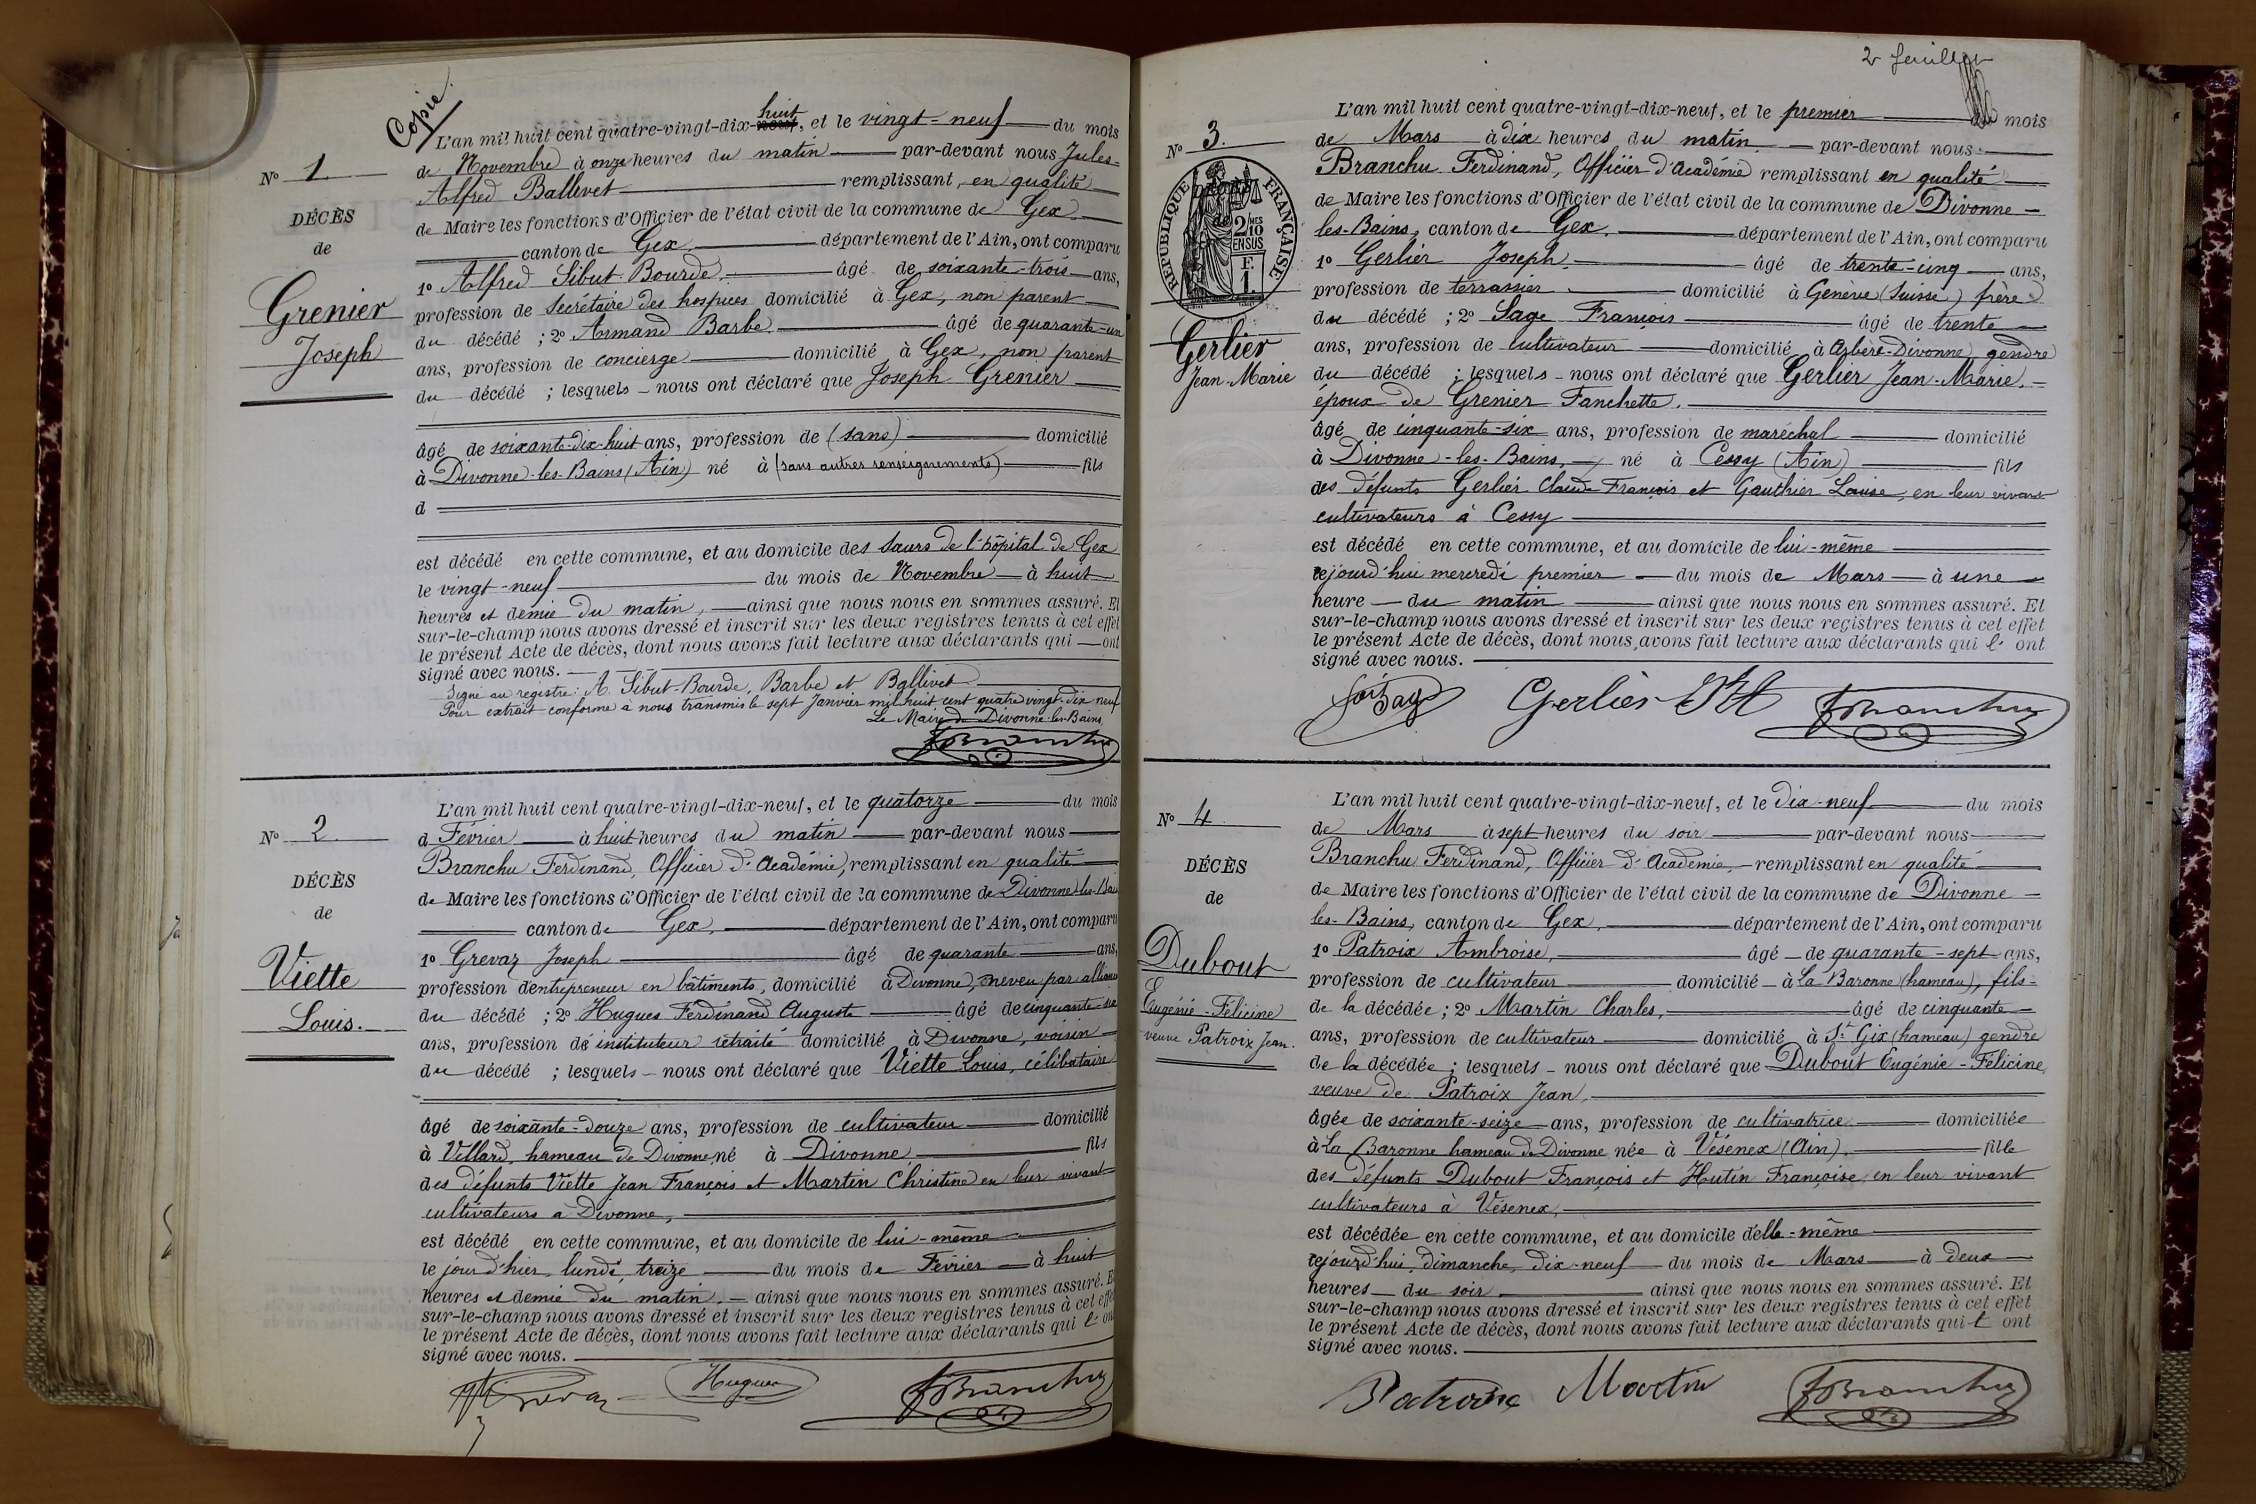 Copie.
N° 1.
DÉCÈS
de
Grenier
Joseph
L'an mil huit cent quatre-vingt-dix-huit, et le vingt-neuf du mois
de Novembre à onze heures du matin par-devant nous Jules-
Alfred Ballivet remplissant, en qualité
de Maire les fonctions d'Officier de l'état civil de la commune de Gex
canton de Gex. département de l'Ain, ont comparu
1° Alfred Sibut-Bourde, âgé de soixante-trois ans,
profession de Secrétaire des hospices domicilié à Gex, non parent
du décédé ; 2° Armand Barbe âgé de quarante-un
ans, profession de concierge domicilié à Gex, non parent
du décédé ; lesquels nous ont déclaré que Joseph Grenier
âgé de soixante-dix-huit ans, profession de (sans) domicilié
à Divonne-les-Bains (Ain) né à (sans autres renseignements) fils
d
est décédé en cette commune, et au domicile des sœurs de l'hôpital de Gex
le vingt-neuf du mois de Novembre à huit
heures et demie du matin, ainsi que nous nous en sommes assuré. Et
sur-le-champ nous avons dressé et inscrit sur les deux registres tenus à cet effet
le présent Acte de décès, dont nous avons fait lecture aux déclarants qui ont
signé avec nous.
Signé au registre: A. Sibut-Bourde, Barbe et Ballivet
Pour extrait conforme à nous transmis le sept Janvier mil huit cent quatre vingt-dix neuf
Le Maire de Divonne-les-Bains
FBranchu
N° 2.
DÉCÈS
de
Viette
Louis.
L'an mil huit cent quatre-vingt-dix-neuf, et le quatorze du mois
d Février à huit heures du matin par-devant nous
Branchu Ferdinand, Officier d'Académie, remplissant en qualité
de Maire les fonctions d'Officier de l'état civil de la commune de Divonne-les-Bai
canton de Gex, département de l'Ain, ont comparu
1° Grevaz Joseph âgé de quarante ans,
profession d'entrepreneur en bâtiments, domicilié à Divonne, neveu par alliance
du décédé ; 2° Hugues Ferdinand Auguste âgé de cinquante-six
ans, profession d'instituteur retraité domicilié à Divonne, voisin
du décédé ; lesquels nous ont déclaré que Viette Louis, célibataire
âgé de soixante-douze ans, profession de cultivateur domicilié
à Villard, hameau de Divonne, né à Divonne fils
des défunts Viette Jean François et Martin Christine en leur vivant
cultivateurs à Divonne,
est décédé en cette commune, et au domicile de lui-même
le jour d'hier, lundi, treize du mois de Février à huit
heures et demie du matin, ainsi que nous nous en sommes assuré. E
sur-le-champ nous avons dressé et inscrit sur les deux registres tenus à cet effet
le présent Acte de décès, dont nous avons fait lecture aux déclarants qui l' on
signé avec nous.
Hugues FBranchu
2e feuillet
N° 3.
RÉPUBLIQUE FRANÇAISE
2/10 MES
EN SUS
F.
1.
Gerlier
Jean-Marie
L'an mil huit cent quatre-vingt-dix-neuf, et le premier du mois
de Mars à dix heures du matin. par-devant nous
Branchu Ferdinand, Officier d'Académie remplissant en qualité
de Maire les fonctions d'Officier de l'état civil de la commune de Divonne-
les-Bains, canton de Gex. département de l'Ain, ont comparu
1° Gerlier Joseph. âgé de trente-cinq ans,
profession de terrassier domicilié à Genève (Suisse) frère
du décédé ; 2° Sage François âgé de trente
ans, profession de cultivateur domicilié à Arbère-Divonne, gendre
du décédé ; lesquels nous ont déclaré que Gerlier Jean-Marie.
époux de Grenier Fanchette.
âgé de cinquante-six ans, profession de maréchal domicilié
à Divonne-les-Bains, né à Cessy (Ain) fils
des défunts Gerlier Claude François et Gauthier Louise, en leur vivant
cultivateurs à Cessy
est décédé en cette commune, et au domicile de lui-même
cejourd'hui mercredi premier du mois de Mars à une
heure du matin ainsi que nous nous en sommes assuré. Et
sur-le-champ nous avons dressé et inscrit sur les deux registres tenus à cet effet
le présent Acte de décès, dont nous avons fait lecture aux déclarants qui l' ont
signé avec nous.
Gerlier FBranchu
N° 4
DÉCÈS
de
Dubout
Eugénie-Félicine
veuve Patroix Jean.
L'an mil huit cent quatre-vingt-dix-neuf, et le dix-neuf du mois
de Mars à sept heures du soir par-devant nous
Branchu Ferdinand, Officier d'Académie, remplissant en qualité
de Maire les fonctions d'Officier de l'état civil de la commune de Divonne-
les-Bains, canton de Gex, département de l'Ain, ont comparu
1° Patroix Ambroise, âgé de quarante-sept ans,
profession de cultivateur domicilié à La Baronne (hameau), fils
de la décédée ; 2° Martin Charles, âgé de cinquante
ans, profession de cultivateur domicilié à St Gix (hameau) gendre
de la décédée ; lesquels nous ont déclaré que Dubout Eugénie-Félicine,
veuve de Patroix Jean,
âgée de soixante-seize ans, profession de cultivatrice domiciliée
à La Baronne hameau de Divonne née à Vésenex (Ain). fille
des défunts Dubout François et Hutin Françoise, en leur vivant
cultivateurs à Vésenex,
est décédée en cette commune, et au domicile d'elle-même
cejourd'hui, dimanche, dix-neuf du mois de Mars à deux
heures du soir ainsi que nous nous en sommes assuré. Et
sur-le-champ nous avons dressé et inscrit sur les deux registres tenus à cet effet
le présent Acte de décès, dont nous avons fait lecture aux déclarants qui l' ont
signé avec nous.
Patroix Martin FBranchu